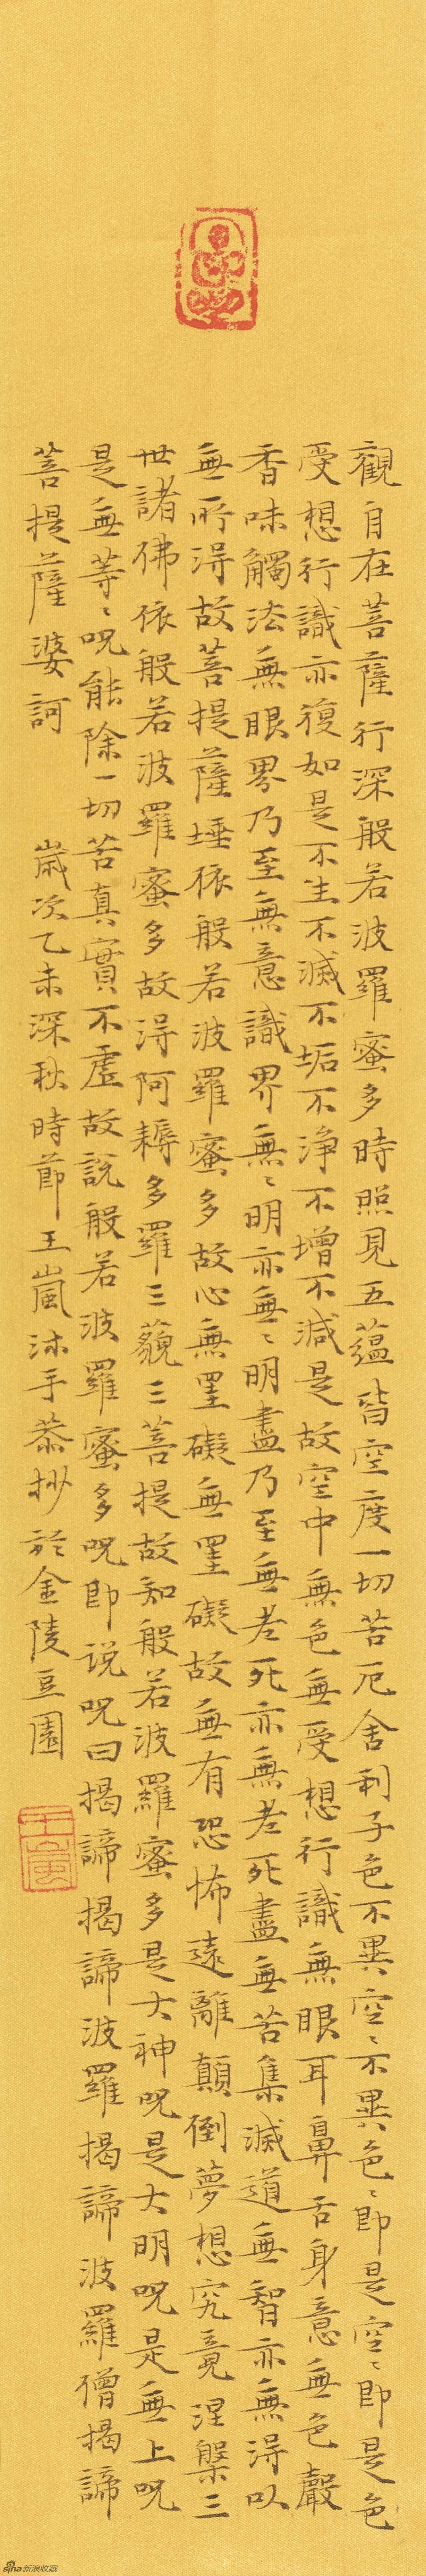 觀自在菩薩行深般若波羅蜜多時照見五蘊皆空度一切苦厄舍利子色不異空〻不異色〻即是空〻即是色
受想行識亦復如是不生不滅不垢不淨不增不減是故空中無色無受想行識無眼耳鼻舌身意無色聲
香味觸法無眼界乃至無意識界無〻明亦無〻明盡乃至無老死亦無老死盡無苦集滅道無智亦無得以
無所得故菩提薩埵依般若波羅蜜多故心無罣礙無罣礙故無有恐怖遠離顛倒夢想究竟涅槃三
世諸佛依般若波羅蜜多故得阿耨多羅三藐三菩提故知般若波羅蜜多是大神咒是大明咒是無上咒
是無等〻咒能除一切苦真實不虛故說般若波羅蜜多咒即说咒曰揭諦揭諦波羅揭諦波羅僧揭諦
菩提薩婆訶 歲次乙未深秋時節王嵐沐手恭抄於金陵豆園
王嵐
sina新浪收藏